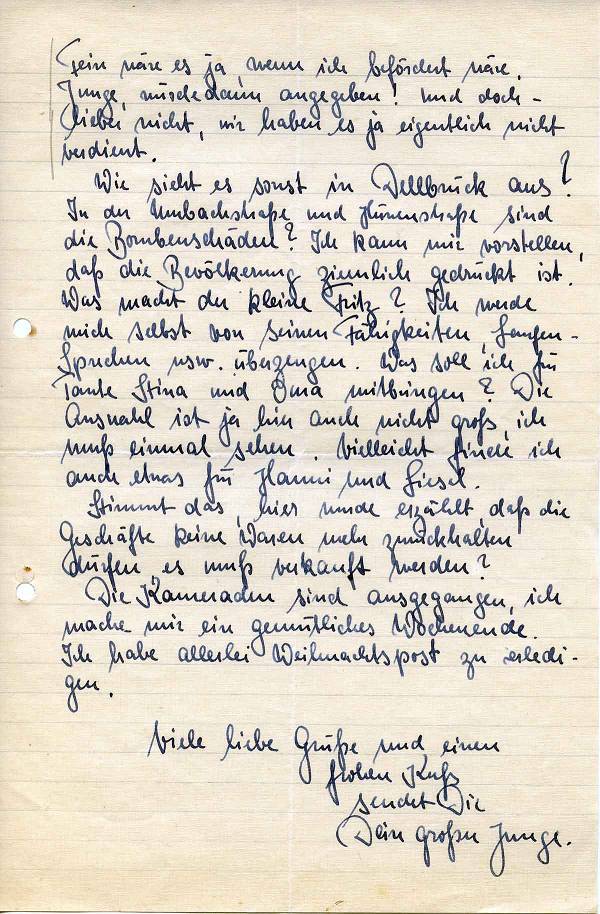 Fein wäre es ja, wenn ich befördert wäre,
Junge, würde dann angegeben! und doch -
lieber nicht, wir haben es ja eigentlich nicht
verdient.
Wie sieht es sonst in Dellbrück aus?
In der Umbachstraße und Hünenstraße sind
die Bombenschäden? Ich kann mir vorstellen,
daß die Bevölkerung ziemlich gedrückt ist.
Was macht der kleine Fritz? Ich werde
mich selbst von seinen Fähigkeiten, Laufen-
Sprechen usw. überzeugen. Was soll ich für
Tante Stina und Oma mitbringen? Die
Auswahl ist ja hier auch nicht groß, ich
muß einmal sehen. Vielleicht finde ich
auch etwas für Hanni und Giesel.
Stimmt das, hier wurde erzählt, daß die
Geschäfte keine Waren mehr zurückhalten
dürfen, es muß verkauft werden?
Die Kameraden sind ausgegangen, ich
mache mir ein gemütliches Wochenende.
Ich habe allerlei Weihnachtspost zu erledi-
gen.
Viele liebe Grüße und einen
frohen Kuß
sendet Dir
Dein großer Junge.